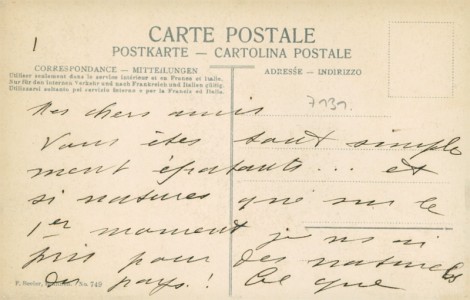 1
CARTE POSTALE
POSTKARTE — CARTOLINA POSTALE
CORRESPONDANCE — MITTEILUNGEN
Utiliser seulement dans le service intérieur et en France et Italie.
Nur für den internen Verkehr und nach Frankreich und Italien gültig.
Utilizzarsi soltanto pel servizio interno e per la Francia ed Italia.
ADRESSE — INDIRIZZO
7131.
Mes chers amis
Vous êtes tout simple
ment épatants... et
si natures que sur le
1er moment je vs ai
pris pour des naturels
du pays! Ce que
No. 749